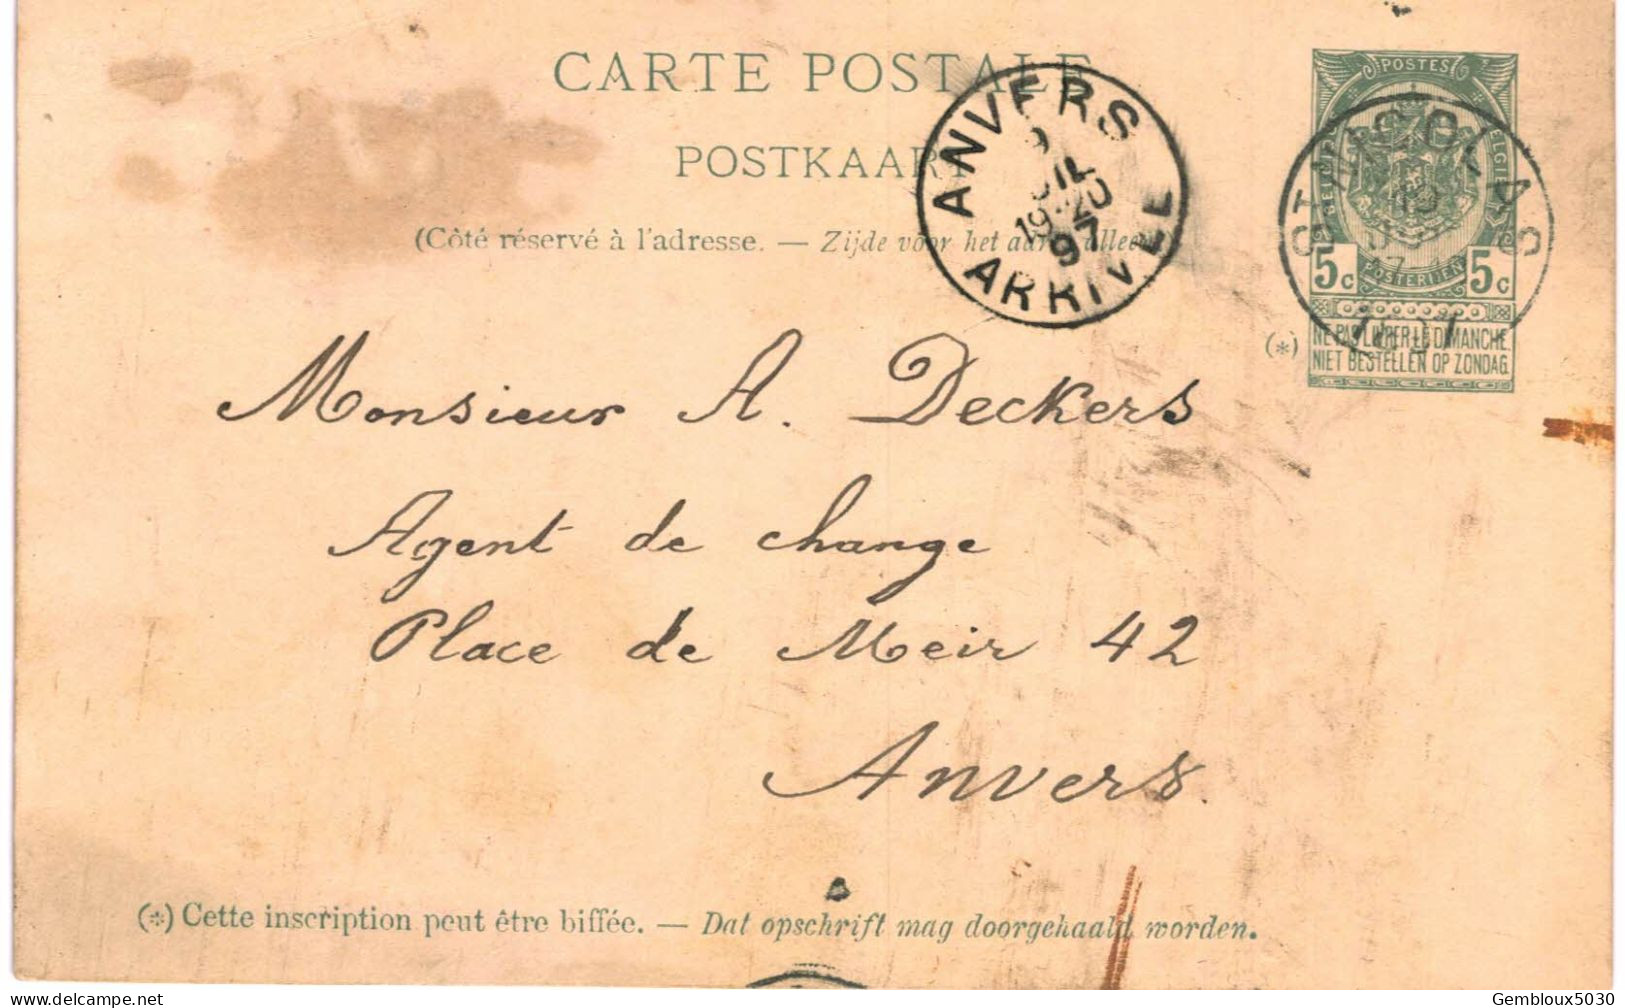 CARTE POSTALE
POSTKAART
(Côté réservé à l'adresse. — Zijde voor het adres alleen)
ANVERS
19-20
97
ARRIVÉE
POSTES
ST NICOLAS
5c POSTERIJEN 5c
(*) NE PAS LIVRER LE DIMANCHE.
NIET BESTELLEN OP ZONDAG.
Monsieur A. Deckers
Agent de change
Place de Meir 42
Anvers.
(*) Cette inscription peut être biffée. — Dat opschrift mag doorgehaald worden.
delcampe.net
Gembloux5030